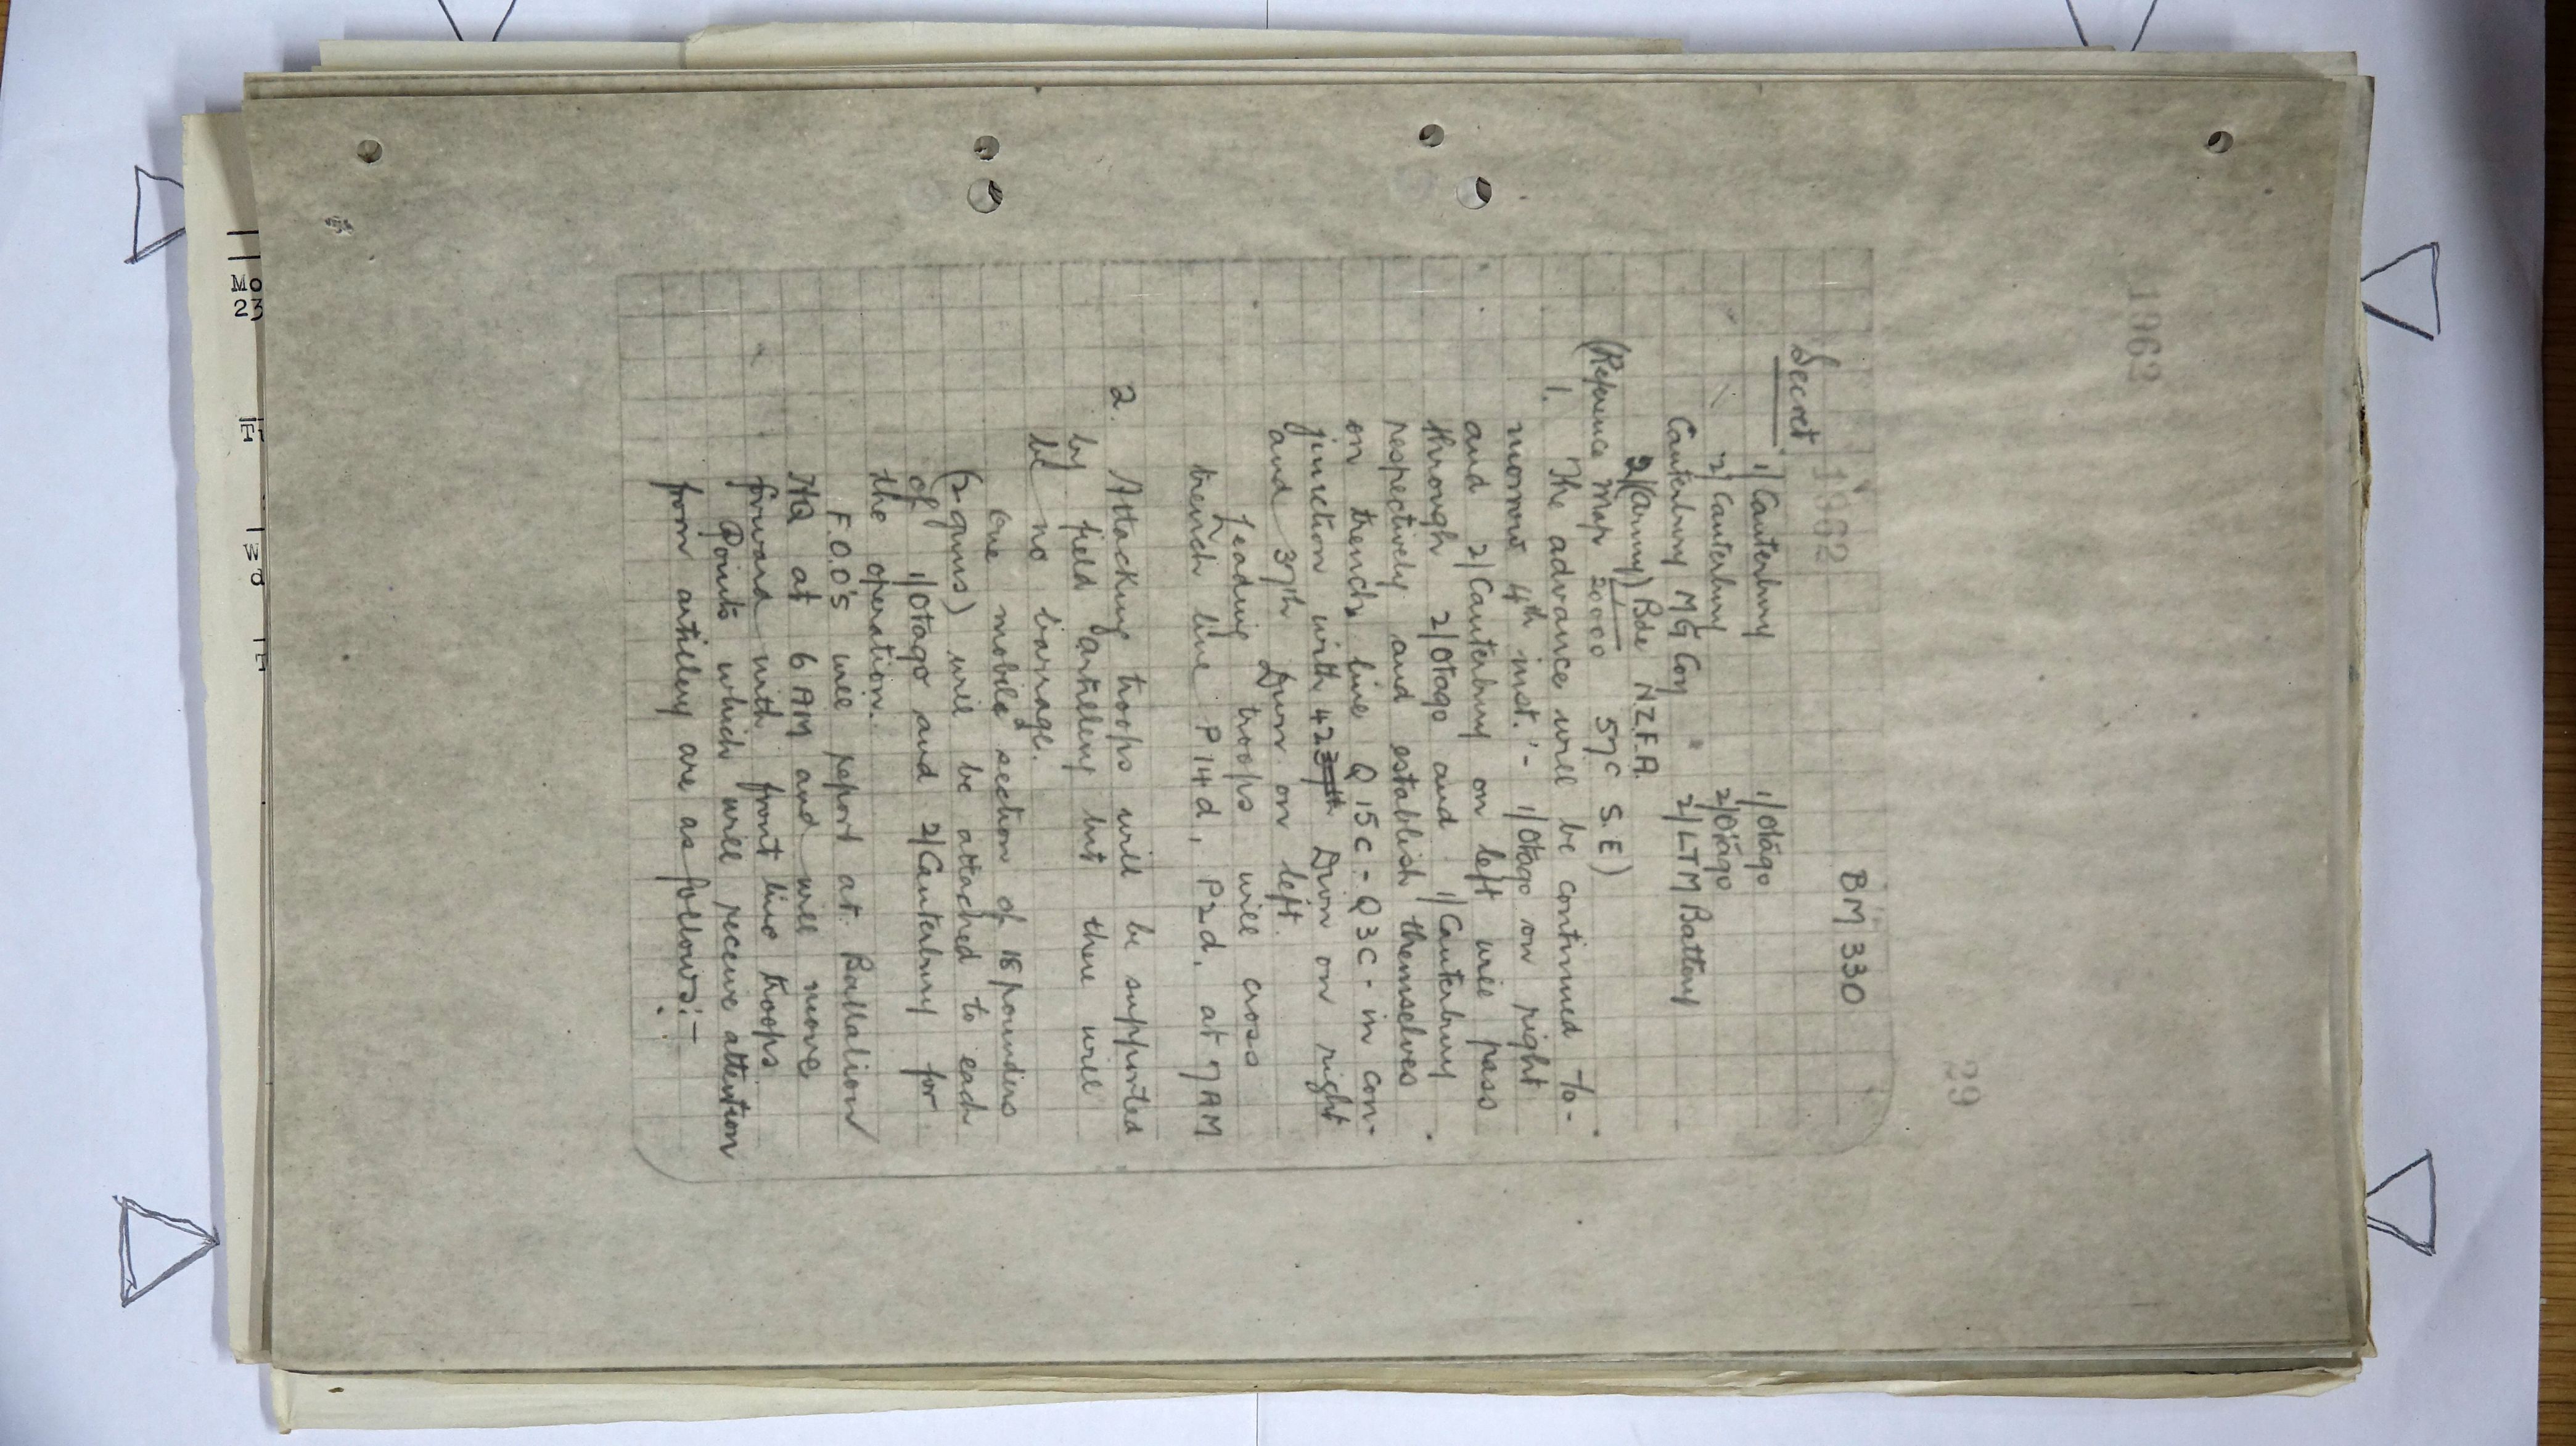 1962
29
1962
BM 330
Secret
1/ Canterbury 1/Otago
2/ Canterbury 2/Otago
Canterbury MG Coy 2/LTM Battery
2/(Army) Bde N.Z.F.A.
(Reference Map 1/20000 57C S.E)
1. The advance will be continued to-
morrow 4th inst. :- 1/Otago on right
and 2/Canterbury on left will pass
through 2/Otago and 1/Canterbury
respectively and establish themselves
on trench line Q15C - Q3C - in con-
junction with 42 37th Divn on right
and 37th Divn on left.
Leading troops will cross
trench line P14d, P2d, at 7AM
2. Attacking troops will be supported
by field artillery but there will
be no barrage.
One mobile section of 18 pounders
(2 guns) will be attached to each
of 1/Otago and 2/Canterbury for
the operation.
F.O.O's will report at Battalion
HQ at 6 AM and will move
forward with front line troops
Points which will receive attention
from artillery are as follows:-
Mo
23